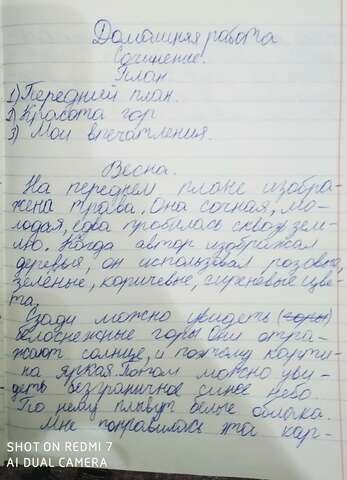 Домашняя работа
Сочинение.
План
1) Передний план.
2) Красота гор
3) Мои впечатления.
Весна.
На переднем плане изобра-
жена трава. Она сочная, мо-
лодая, едва пробилась сквозь зем-
лю. Когда автор изображал
деревья, он использовал розовые,
зелёные, коричневые, сиреневые цве-
та.
Сзади можно увидеть (горы)
белоснежные горы они отра-
жают солнце, и поэтому карти-
на яркая. Потом можно уви-
деть безграничное синее небо.
По нему плывут белые облака.
Мне понравилась эта кар-
SHOT ON REDMI 7
AI DUAL CAMERA